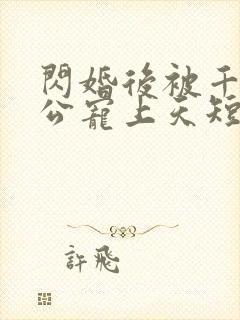 閃婚後被千
公寵上天短
許飛